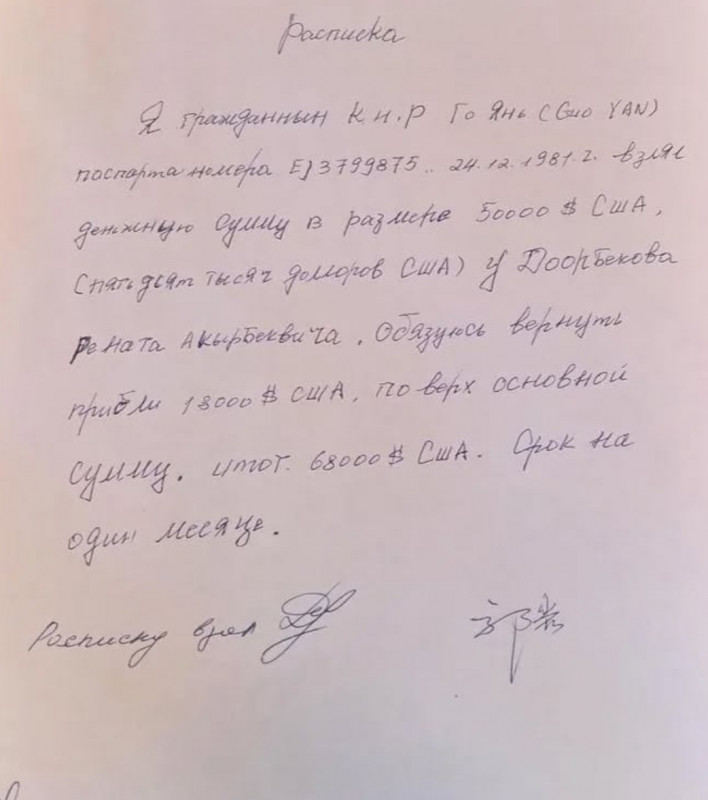 Расписка
Я гражданнын К.н.Р Го Янь (Guo YAN)
поспарта номера EJ3799875.. 24.12.1981.г. взял
денжную сумму в размере 50000 $ США,
(пятьдсят тысяч доморов США) у Доорбекова
Рената Акырбеквича. Обязуюсь вернуть
прибли 18000 $ США, по верх основной
сумму. итог. 68000 $ США. Срок на
один месяце.
Росписку взял